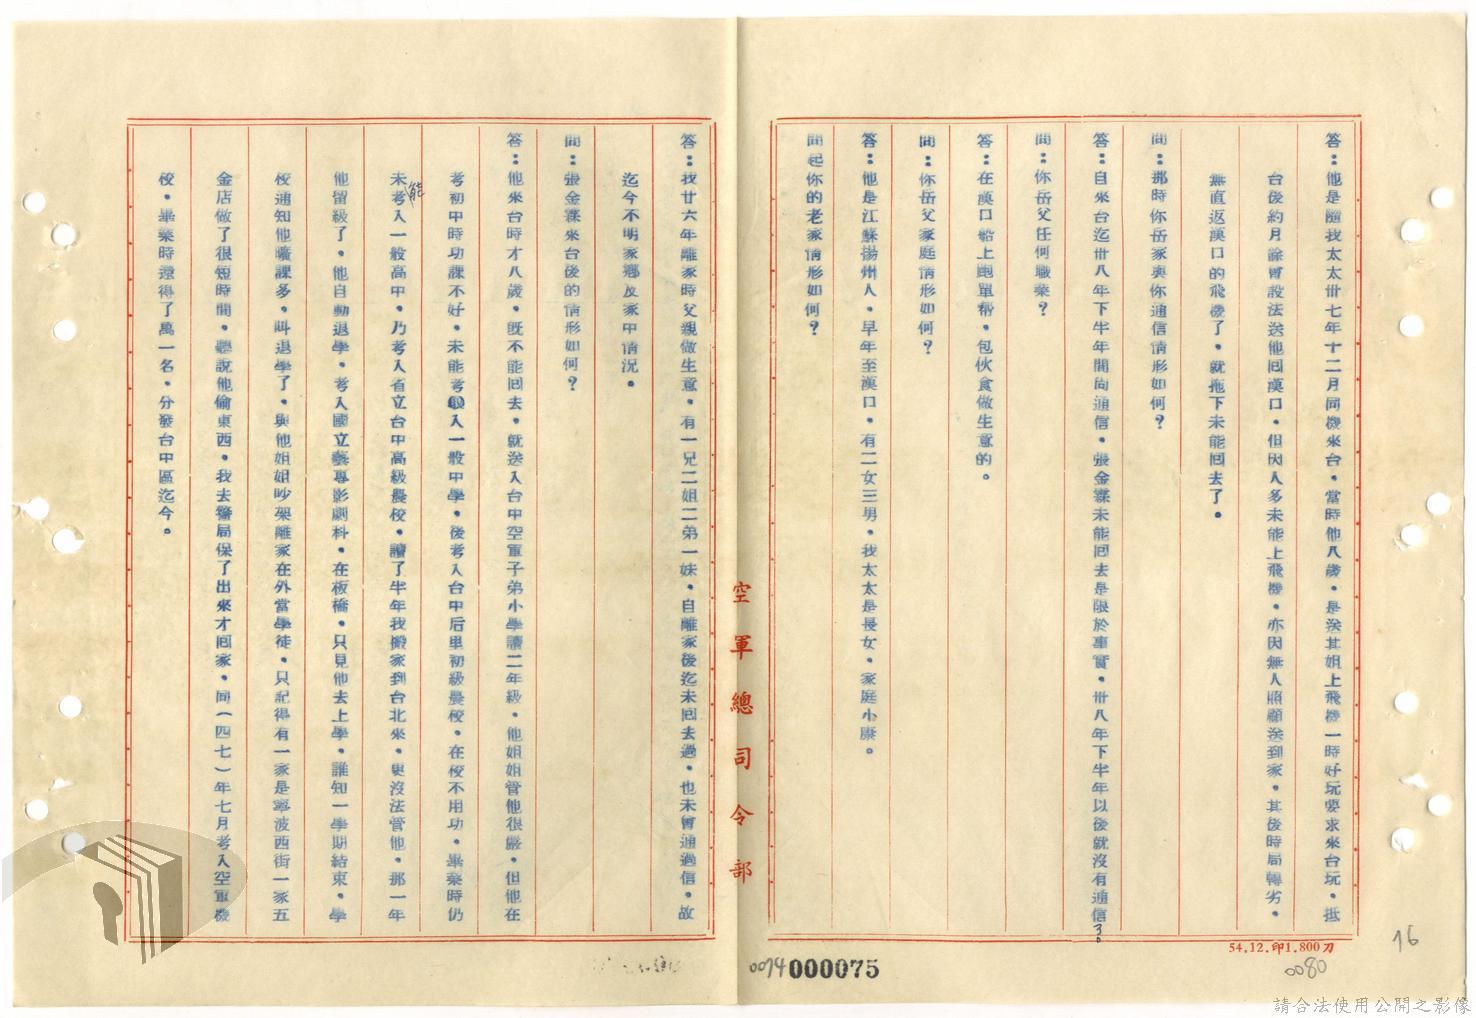 答：他是隨我太太卅七年十二月同機來台，當時他八歲，是送其姐上飛機一時好玩要求來台玩，抵
台後約月餘曾設法送他回漢口，但因人多未能上飛機，亦因無人照顧送到家，其後時局轉劣，
無直返漢口的飛機了，就拖下未能回去了。
問：那時你岳家與你通信情形如何？
答：自來台迄卅八年下半年間尚通信，張金霖未能回去是限於事實，卅八年下半年以後就沒有通信了。
問：你岳父任何職業？
答：在漢口船上跑單幫，包伙食做生意的。
問：你岳父家庭情形如何？
答：他是江蘇揚州人，早年至漢口，有二女三男，我太太是長女，家庭小康。
問起你的老家情形如何？
答：我廿六年離家時父親做生意，有一兄二姐二弟一妹，自離家後迄未回去過，也未曾通過信，故
迄今不明家鄉及家中情況。
問：張金霖來台後的情形如何？
答：他來台時才八歲，既不能回去，就送入台中空軍子弟小學讀二年級，他姐姐管他很嚴，但他在
考初中時功課不好，未能考入一般中學，後考入台中后里初級農校，在校不用功，畢業時仍
未能考入一般高中，乃考入省立台中高級農校，讀了半年我搬家到台北來，更沒法管他，那一年
他留級了，他自動退學，考入國立藝專影劇科，在板橋，只見他去上學，誰知一學期結束，學
校通知他曠課多，叫退學了，與他姐姐吵架離家在外當學徒，只記得有一家是寧波西街一家五
金店做了很短時間，聽說他偷東西，我去警局保了出來才回家，同（四七）年七月考入空軍機
校，畢業時還得了萬一名，分發台中區迄今。
空軍總司令部
54.12.印1.800刀
16
0080
0074
000075
請合法使用公開之影像